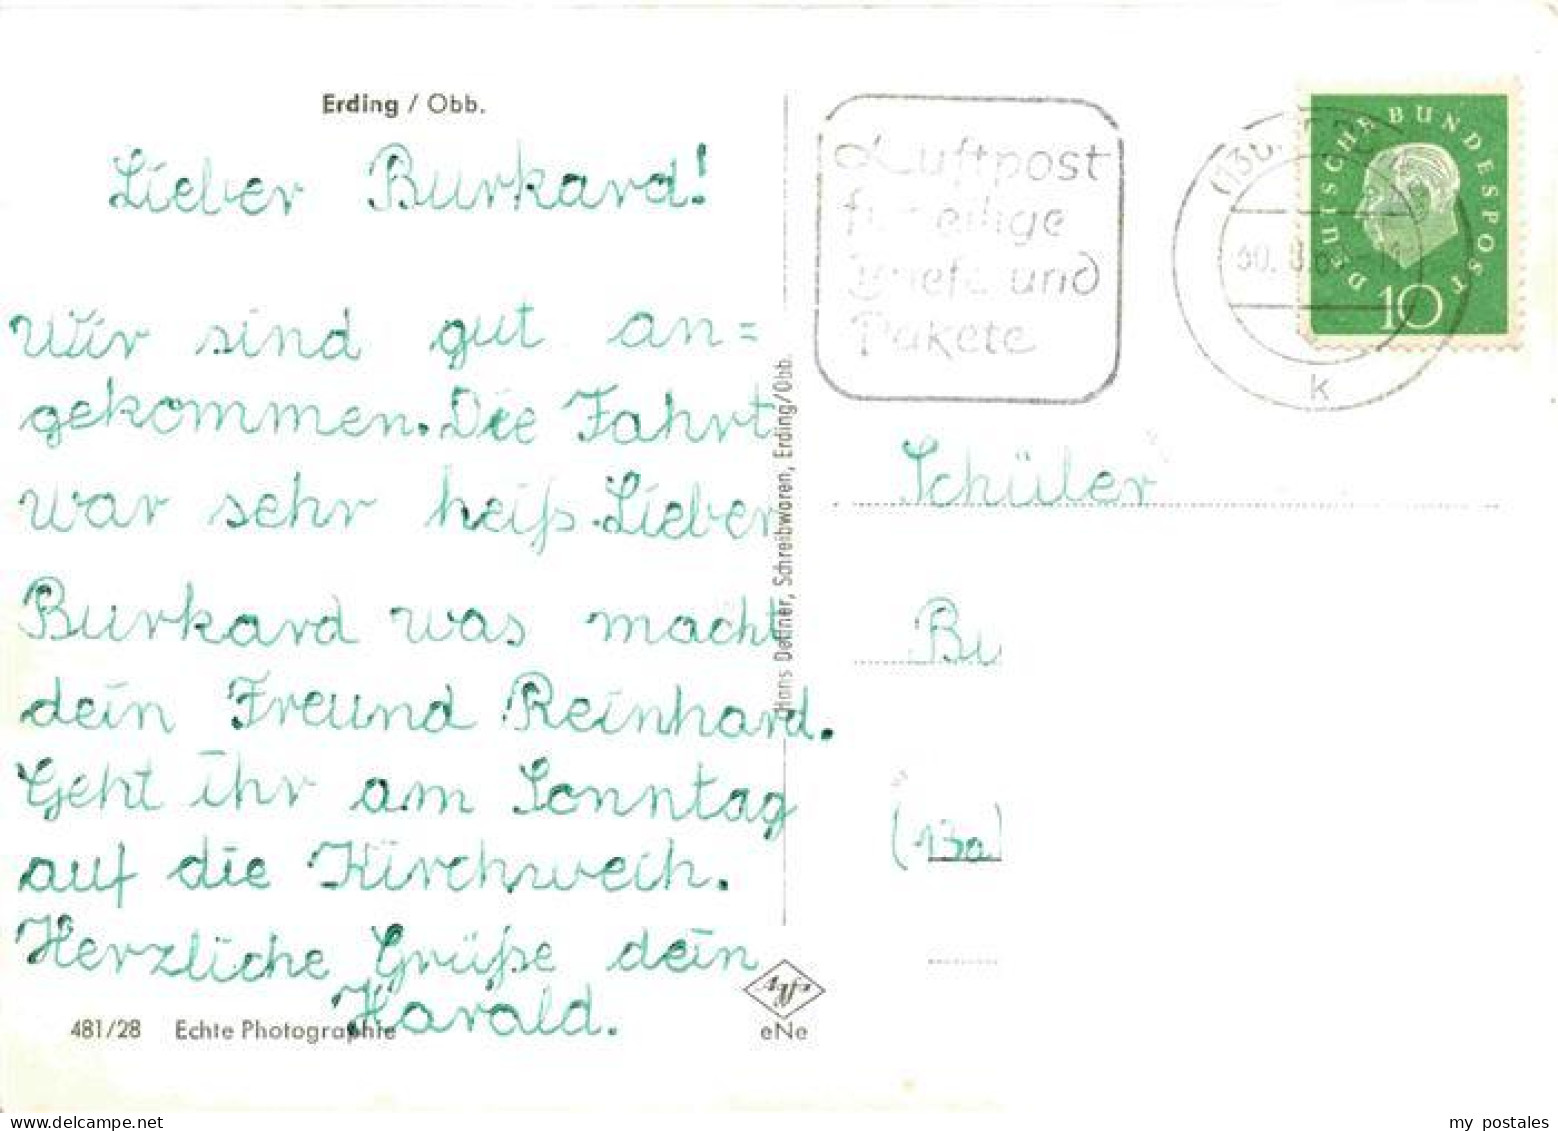 Erding / Obb.
Lieber Burkard!
Wir sind gut an=
gekommen. Die Fahrt
war sehr heiß. Lieber
Burkard was macht
dein Freund Reinhard.
Geht ihr am Sonntag
auf die Kirchweih.
Herzliche Grüße dein
Harald.
481/28 Echte Photographie
Hans Dettner, Schreibwaren, Erding/Obb.
Agfa
eNe
Luftpost
für eilige
Briefe und
Pakete
k
DEUTSCHE BUNDESPOST
10
Schüler
Bu
(13a)
my postales
www.delcampe.net